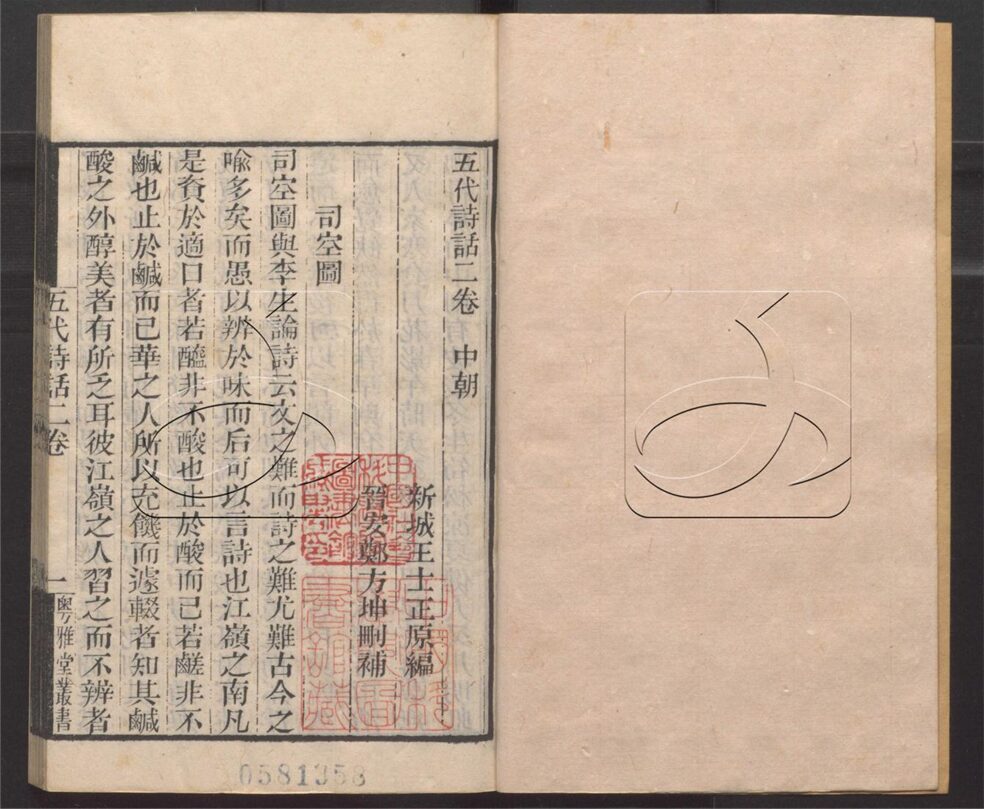 五代詩話二卷 中朝
新城王士正原編
晉安鄭方坤刪補
司空圖
司空圖與李生論詩云文之難而詩之難尤難古今之
喻多矣而愚以辨於味而后可以言詩也江嶺之南凡
是資於適口者若醯非不酸也止於酸而已若鹺非不
鹹也止於鹹而已華之人所以充饑而遽輟者知其鹹
酸之外醇美者有所乏耳彼江嶺之人習之而不辨者
五代詩話二卷
一
粵雅堂叢書
0581358